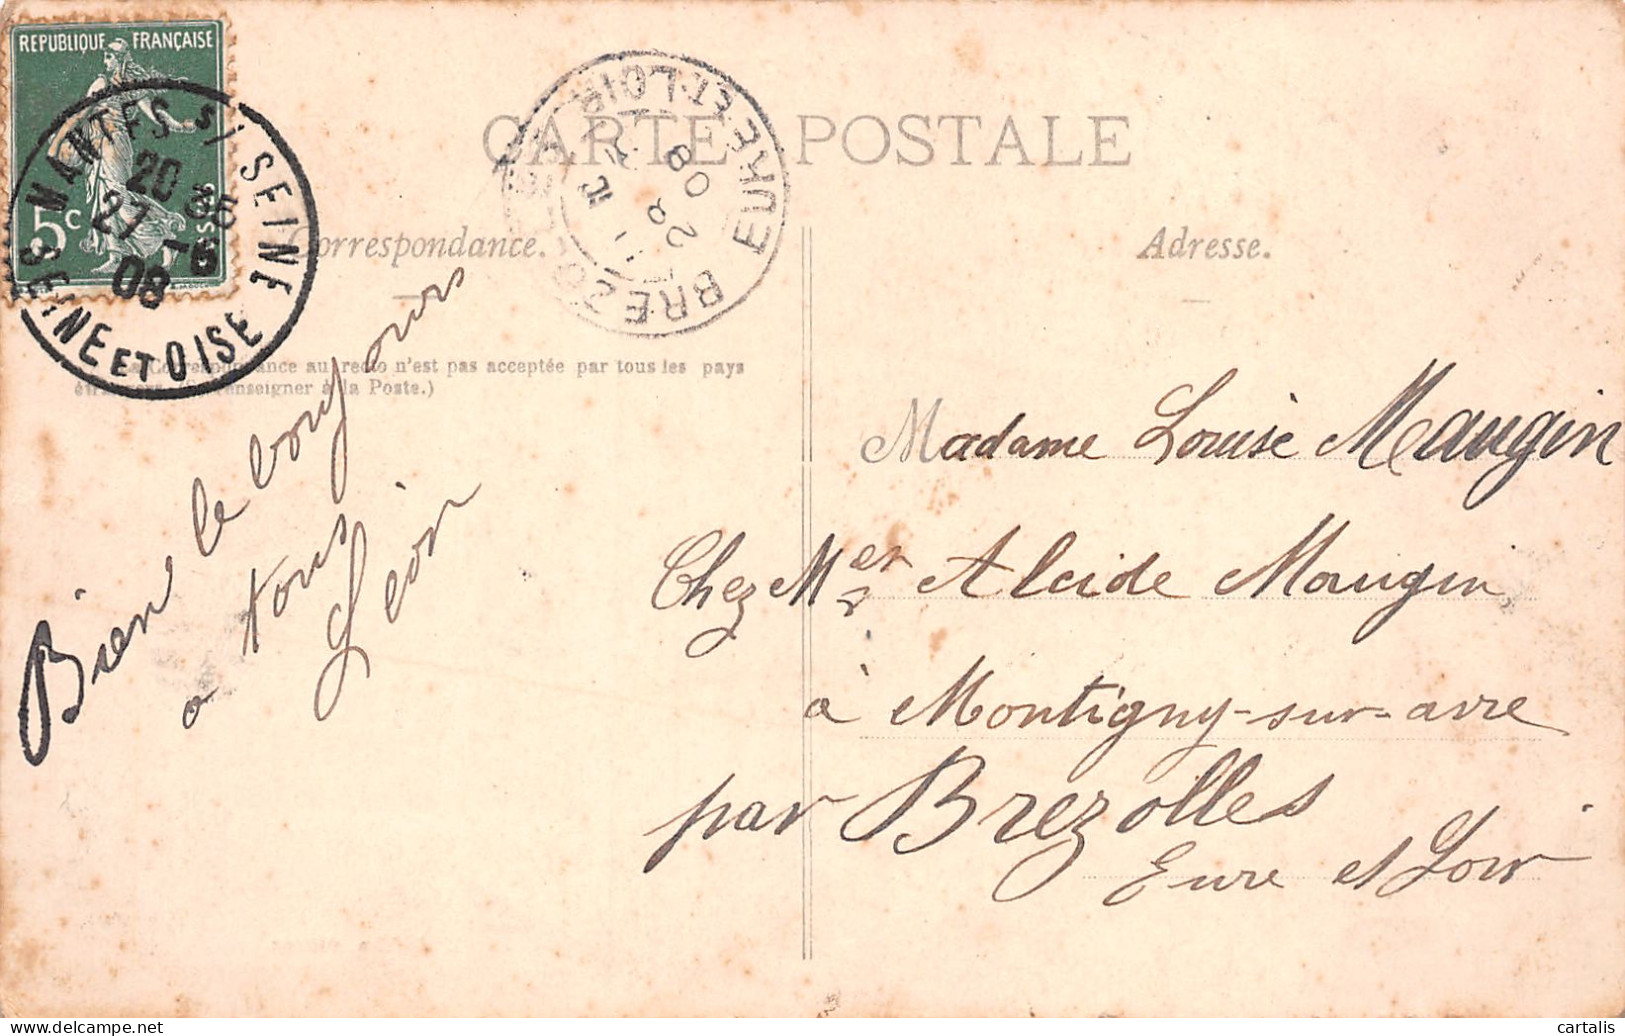 REPUBLIQUE FRANÇAISE
5c
MANTES s/ SEINE
20 35
27 -6
08
SEINE ET OISE
BREZOLLES
EURE-ET-LOIR
08
CARTE POSTALE
Correspondance.
Adresse.
La Correspondance au recto n'est pas acceptée par tous les pays
étrangers (Se renseigner à la Poste.)
Bien le bonjours
a tous
Léon
Madame Louise Maugin
Chez Mer Alcide Maugin
à Montigny-sur-avre
par Brezolles
Eure et Loir
cartalis